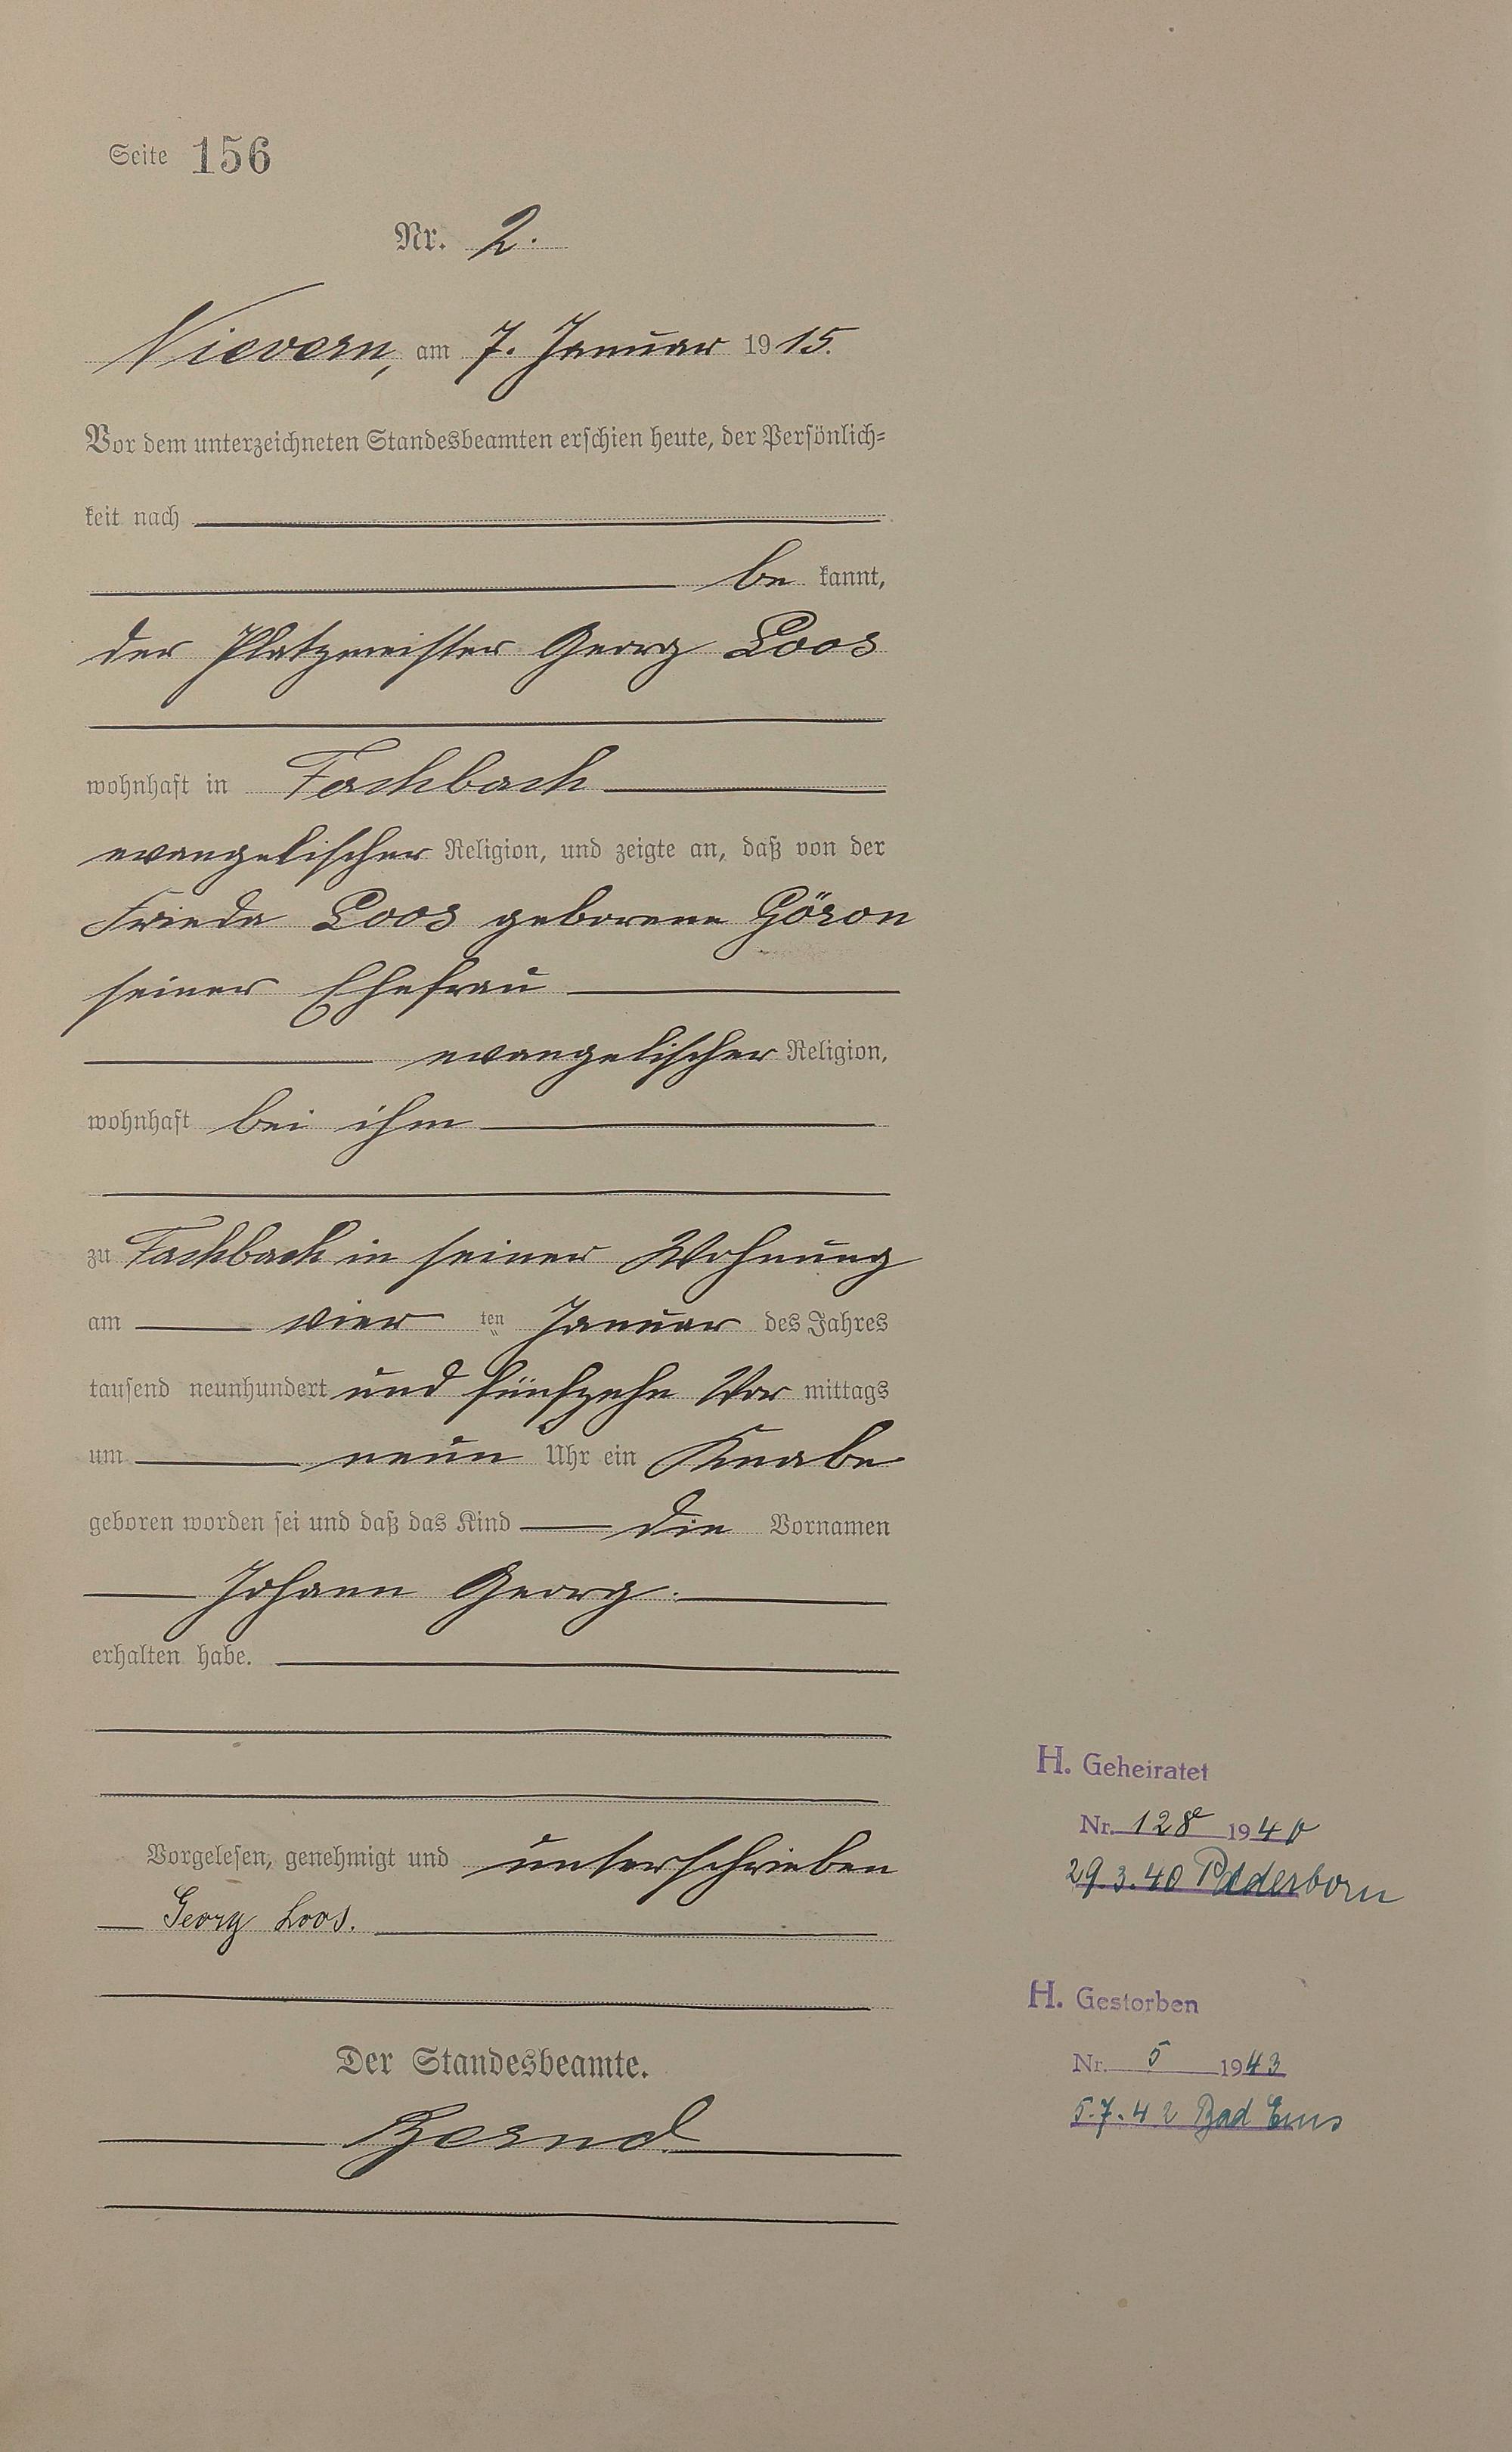 Seite 156
Nr. 2.
Nievern, am 7. Januar 1915.
Vor dem unterzeichneten Standesbeamten erschien heute, der Persönlich=
keit nach
be kannt,
der Platzmeister Georg Loos
wohnhaft in Fachbach
evangelischer Religion, und zeigte an, daß von der
Frieda Loos geborene Göron
seiner Ehefrau
evangelischer Religion,
wohnhaft bei ihm
zu Fachbach in seiner Wohnung
am vier ten Januar des Jahres
tausend neunhundert und fünfzehn Vor mittags
um neun Uhr ein Knabe
geboren worden sei und daß das Kind die Vornamen
Johann Georg.
erhalten habe.
Vorgelesen, genehmigt und unterschrieben
Georg Loos.
Der Standesbeamte.
H. Geheiratet
Nr. 128 1940
29.3.40 Paderborn
H. Gestorben
Nr. 5 1943
5.7.42 Bad Ems